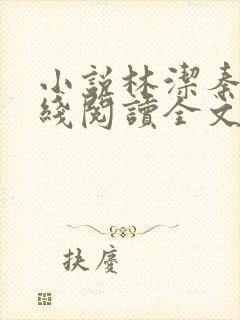 小説林潔秦
綫閲讀全文
扶慶